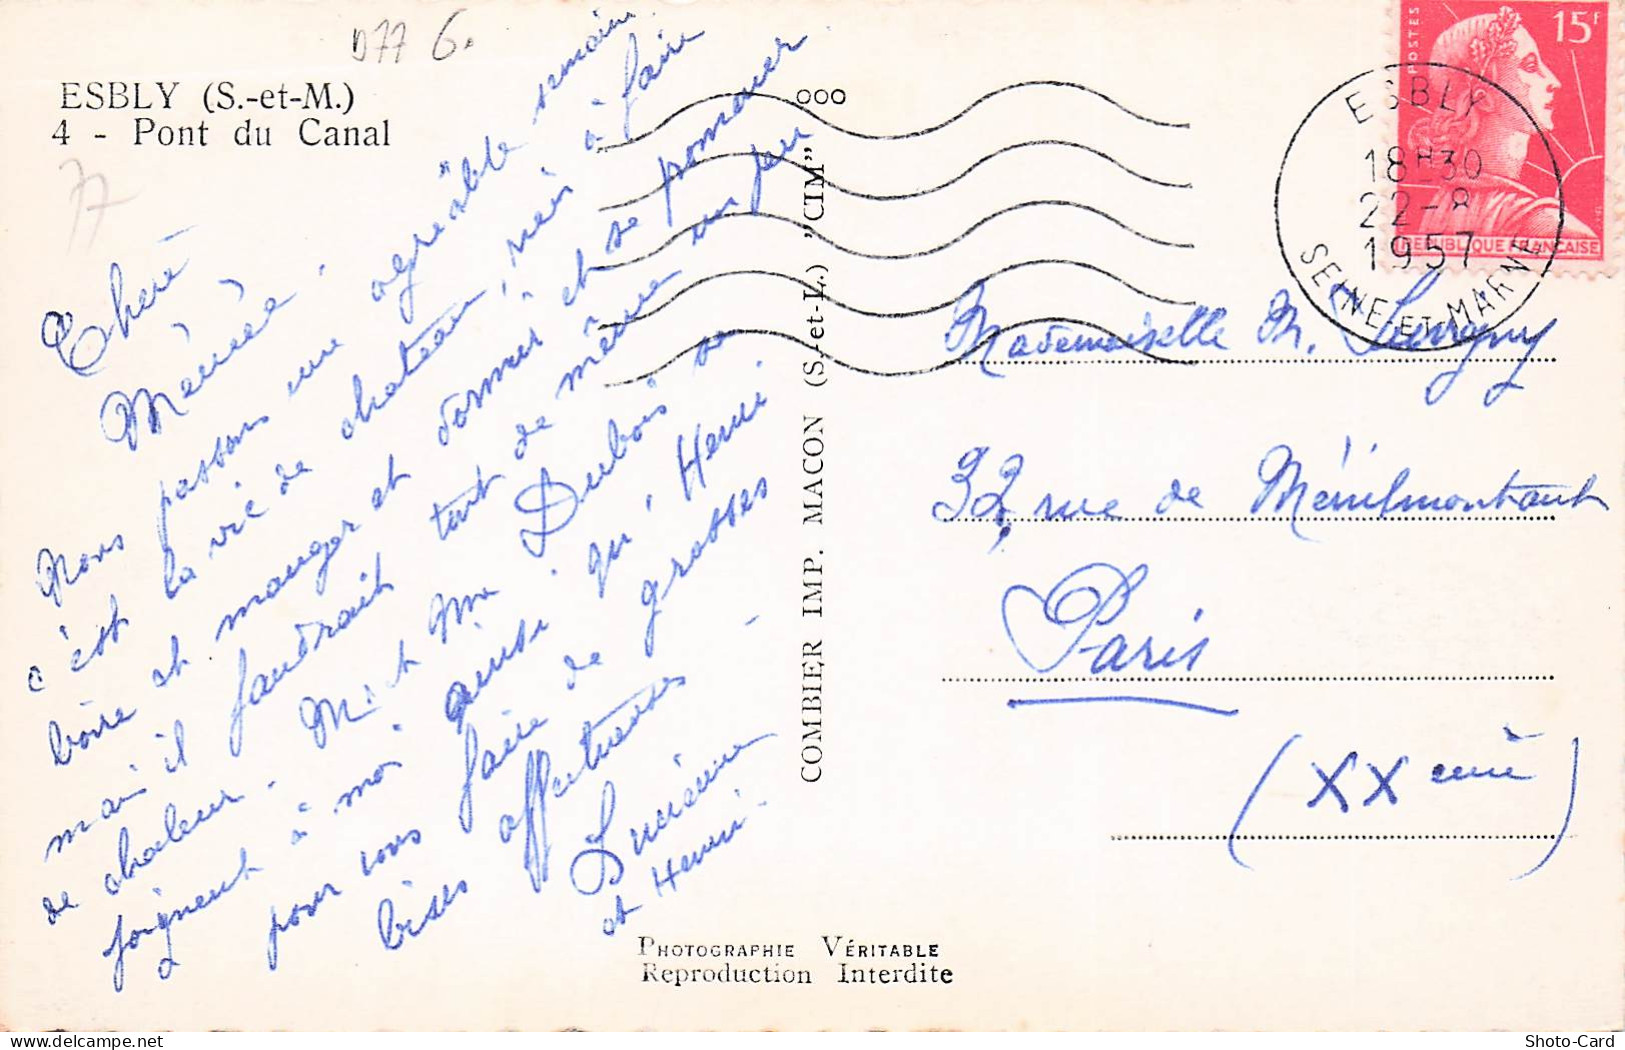 D77 6.
ESBLY (S.-et-M.)
4 - Pont du Canal
77
Chère
Mémée.
Nous passons une agréable semaine
c'est la vie de chateau, rien à faire
boire et manger et dormir et se promener
mais il faudrait tout de même un peu
de chaleur. M. et Mme Dubois se
joignent à moi ainsi qu'Henri
pour vous faire de grosses
bises affectueuses -
Lucienne
et Henri.
COMBIER IMP. MACON (S.-et-L.) "CIM"
ooo
PHOTOGRAPHIE VÉRITABLE
Reproduction Interdite
POSTES
15F
REPUBLIQUE FRANCAISE
ESBLY
18H30
22-8
1957
SEINE-ET-MARNE
Mademoiselle M.
32, rue de Ménilmontant
Paris
(XXeme)
Shoto-Card